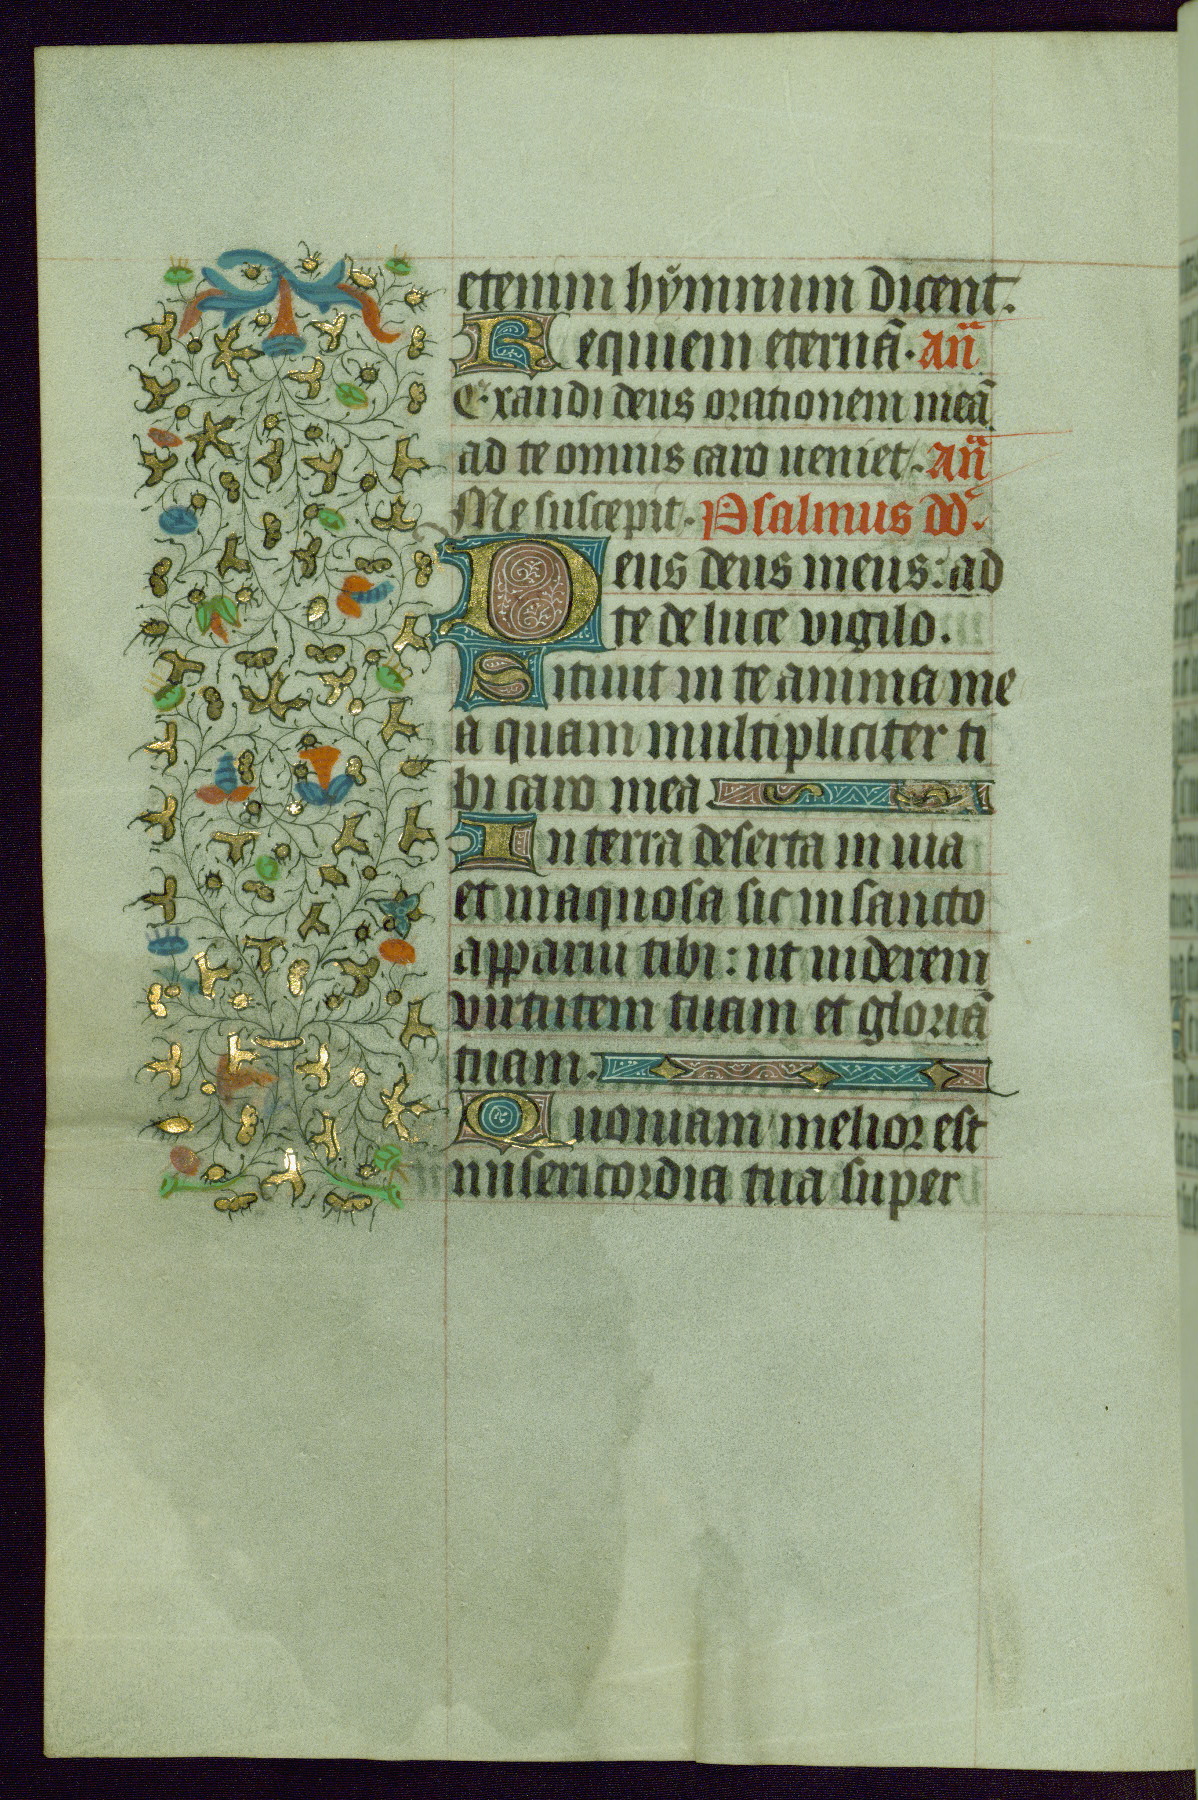 etenim hÿmnum dicent.
Requiem eternã. Añ
Exaudi deus orationem meã
ad te omnis caro ueniet. Añ
Me suscepit. Psalmus dd.
Deus deus meus: ad
te de luce vigilo.
Sitiuit in te anima me
a quam multipliciter ti
bi caro mea
In terra deserta in uia
et inaquosa sic in sancto
apparui tibi: ut uiderem
virtutem tuam et gloriã
tuam.
Quoniam melior est
misericordia tua super